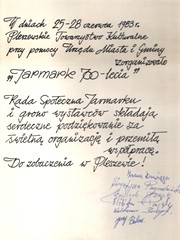 W dniach 25-28 czerwca 1983 r.
Pleszewskie Towarzystwo Kulturalne
przy pomocy Urzędu Miasta i Gminy
zorganizowało
„Jarmark 700-lecia"
Rada Społeczna Jarmarku
i grono wystawców składają
serdeczne podziękowanie za
świetną organizację i przemiłą
współpracę.
Do zobaczenia w Pleszewie!